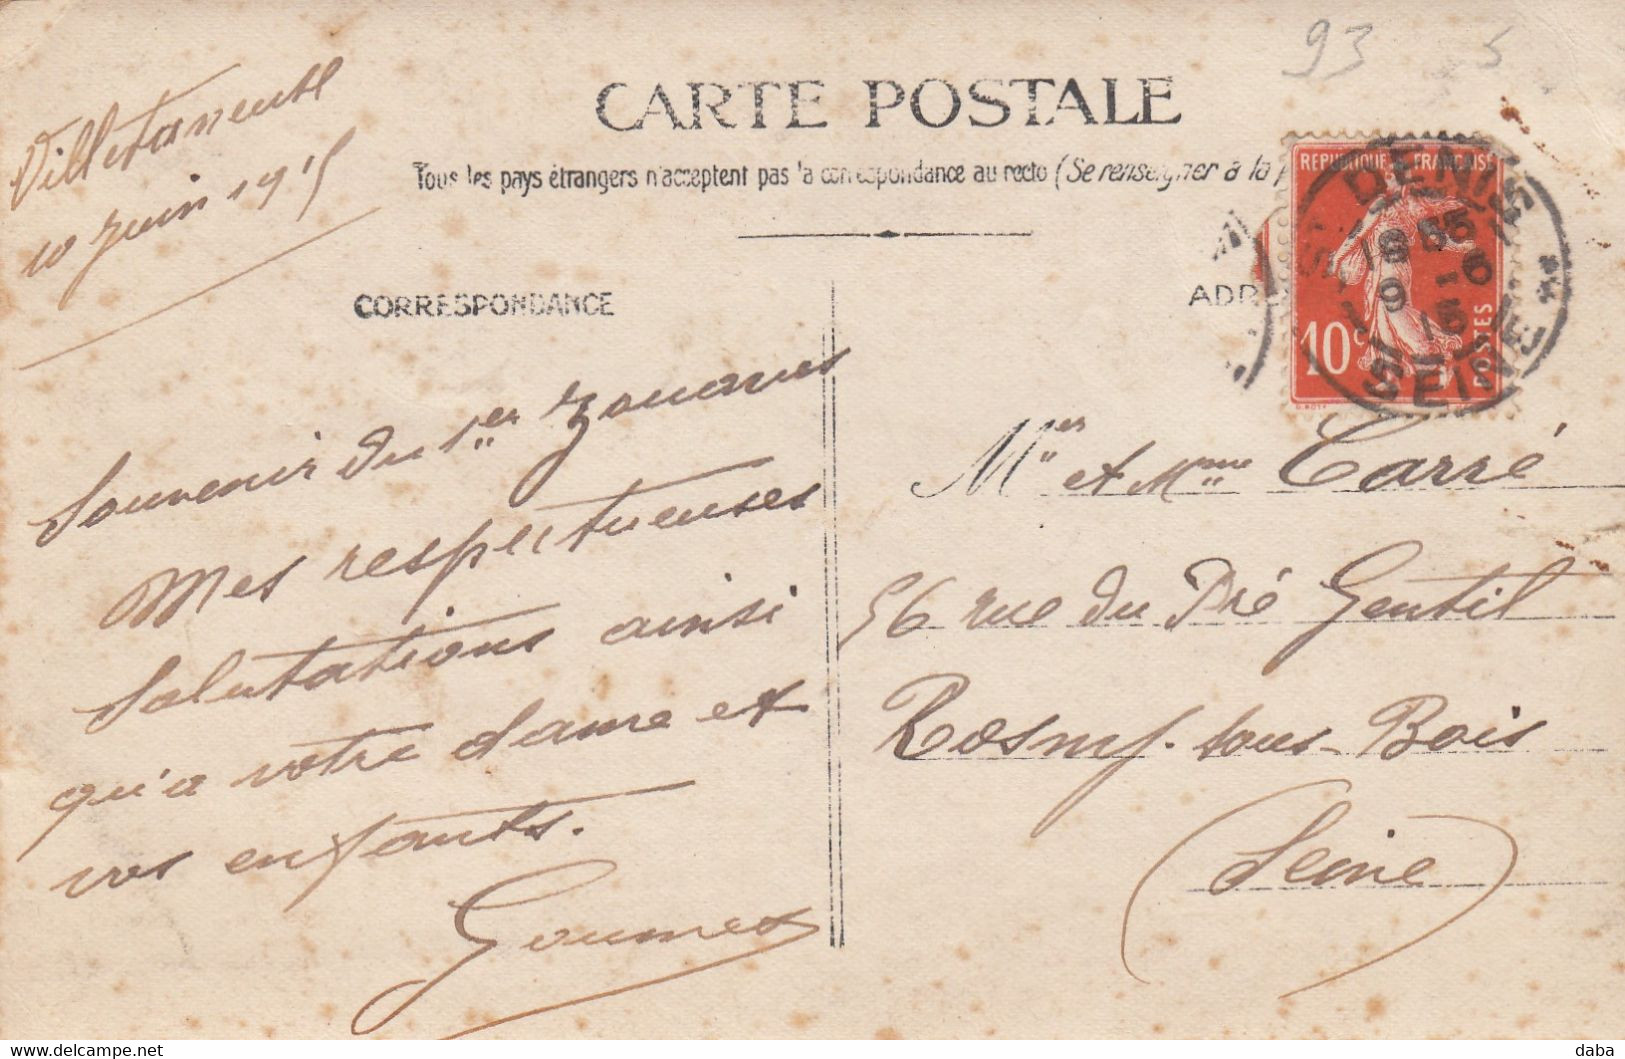 93 5
CARTE POSTALE
Tous les pays étrangers n'acceptent pas la correspondance au recto (Se renseigner à la
Villetaneuse
10 Juin 1915
CORRESPONDANCE
Souvenir du 1er Zouaves
Mes respectueuses
Salutations ainsi
qu'a votre dame et
vos enfants.
Goumes
ADR
REPUBLIQUE FRANÇAISE
10c
POSTES
O. ROTY
ST DENIS
18 55
9 -6
15
SEINE
Mer et Mme Carré
56 rue du Pré Gentil
Rosny-sous-Bois
(Seine)
daba
www.delcampe.net